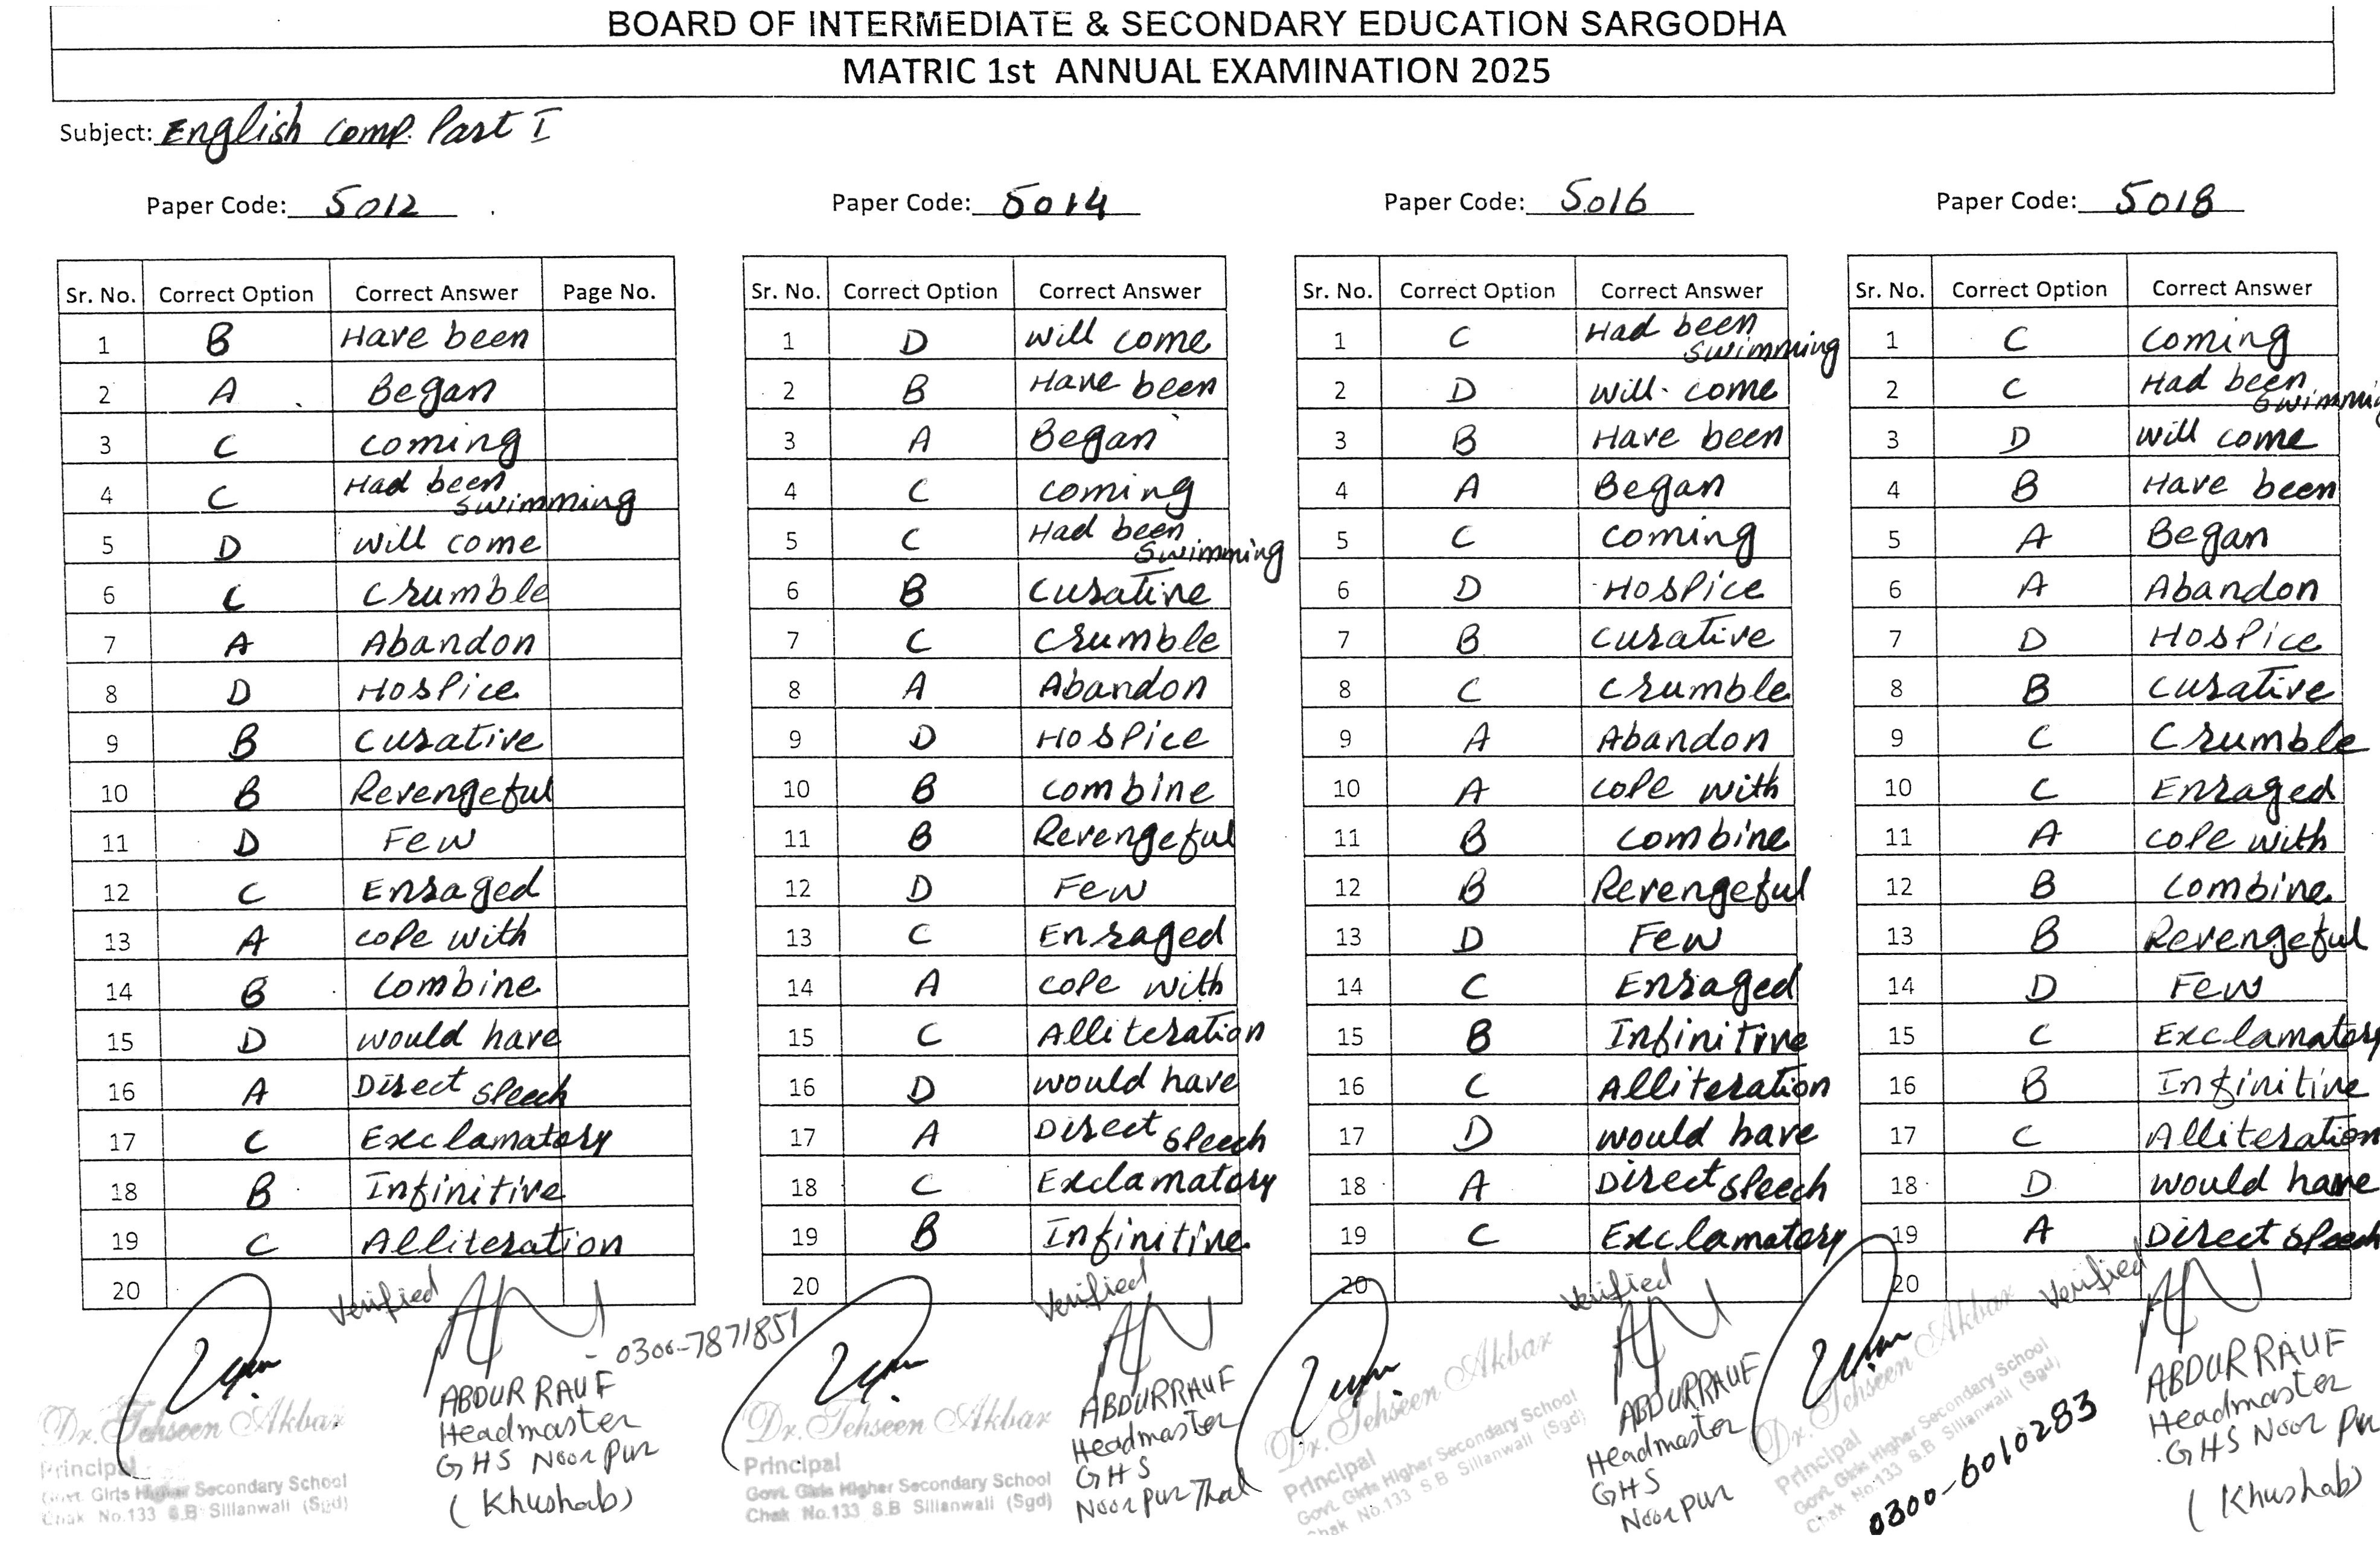 BOARD OF INTERMEDIATE & SECONDARY EDUCATION SARGODHA
MATRIC 1st ANNUAL EXAMINATION 2025
Subject: English Comp. Part I
Paper Code: 5012
Sr. No. Correct Option Correct Answer Page No.
1 B Have been
2 A Began
3 C Coming
4 C Had been swimming
5 D Will come
6 C Crumble
7 A Abandon
8 D Hospice
9 B Curative
10 B Revengeful
11 D Few
12 C Enraged
13 A Cope with
14 B Combine
15 D Would have
16 A Direct speech
17 C Exclamatory
18 B Infinitive
19 C Alliteration
20
Verified
0300-7871851
ABDUR RAUF
Headmaster
GHS Noor Pur
(Khushab)
Dr. Tehseen Akbar
Principal
Govt. Girls Higher Secondary School
Chak No.133 S.B Sillanwali (Sgd)
Paper Code: 5014
Sr. No. Correct Option Correct Answer
1 D Will come
2 B Have been
3 A Began
4 C Coming
5 C Had been swimming
6 B Curative
7 C Crumble
8 A Abandon
9 D Hospice
10 B Combine
11 B Revengeful
12 D Few
13 C Enraged
14 A Cope with
15 C Alliteration
16 D Would have
17 A Direct speech
18 C Exclamatory
19 B Infinitive
20
Verified
ABDUR RAUF
Headmaster
GHS
Noor Pur Thal
Dr. Tehseen Akbar
Principal
Govt. Girls Higher Secondary School
Chak No.133 S.B Sillanwali (Sgd)
Paper Code: 5016
Sr. No. Correct Option Correct Answer
1 C Had been swimming
2 D Will come
3 B Have been
4 A Began
5 C Coming
6 D Hospice
7 B Curative
8 C Crumble
9 A Abandon
10 A Cope with
11 B Combine
12 B Revengeful
13 D Few
14 C Enraged
15 B Infinitive
16 C Alliteration
17 D Would have
18 A Direct speech
19 C Exclamatory
20
Verified
ABDUR RAUF
Headmaster
GHS
Noor Pur
Dr. Tehseen Akbar
Principal
Govt. Girls Higher Secondary School
Chak No.133 S.B Sillanwali (Sgd)
Paper Code: 5018
Sr. No. Correct Option Correct Answer
1 C Coming
2 C Had been swimming
3 D Will come
4 B Have been
5 A Began
6 A Abandon
7 D Hospice
8 B Curative
9 C Crumble
10 C Enraged
11 A Cope with
12 B Combine
13 B Revengeful
14 D Few
15 C Exclamatory
16 B Infinitive
17 C Alliteration
18 D Would have
19 A Direct speech
20
Verified
ABDUR RAUF
Headmaster
GHS Noor Pur
(Khushab)
Dr. Tehseen Akbar
Principal
Govt. Girls Higher Secondary School
Chak No.133 S.B Sillanwali (Sgd)
0300-6010283